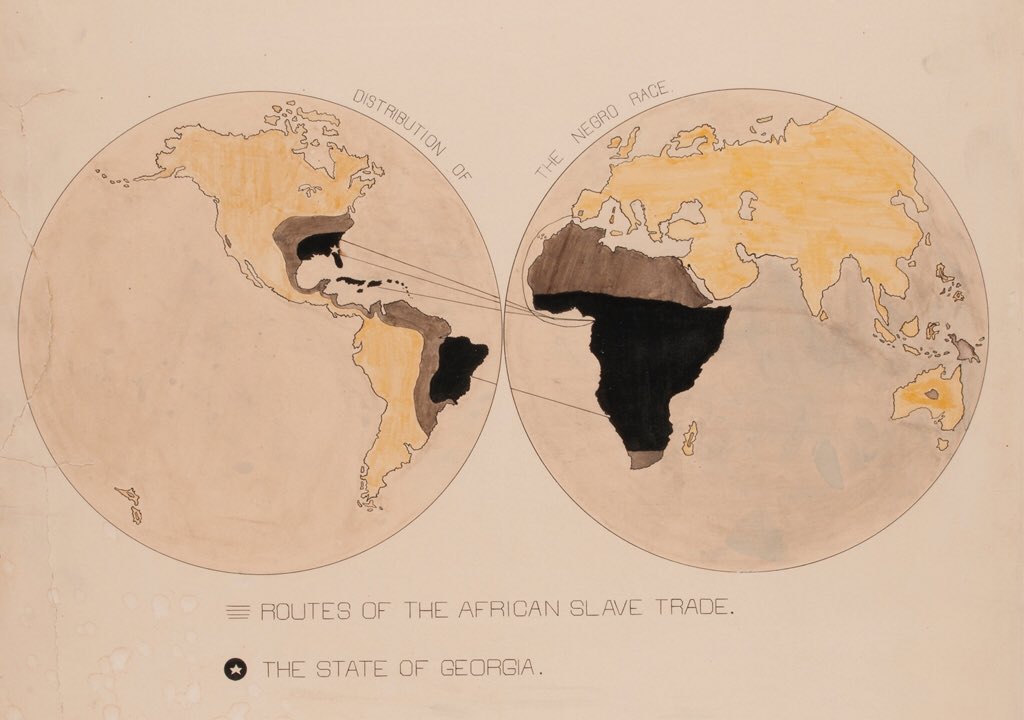 DISTRIBUTION OF THE NEGRO RACE.
ROUTES OF THE AFRICAN SLAVE TRADE.
THE STATE OF GEORGIA.